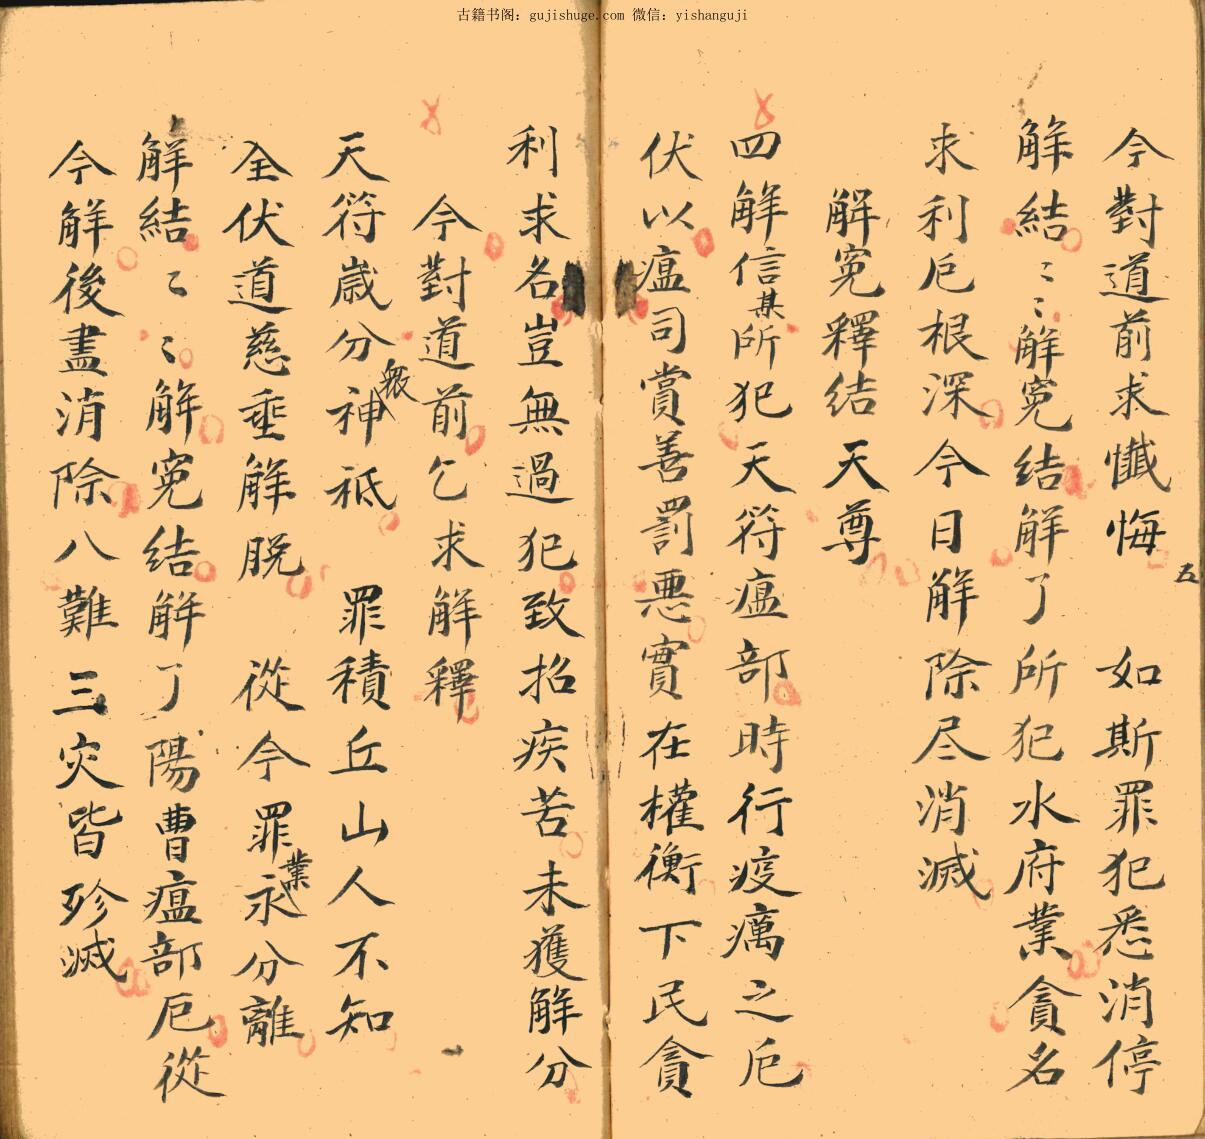 古籍书阁：gujishuge.com 微信：yishanguji
今對道前求懺悔　如斯罪犯悉消停
五
解結〻〻解冤結解了所犯水府業貪名
求利厄根深今日解除尽消滅
解冤釋結天尊
四解信某所犯天符瘟部時行疫癘之厄
伏以瘟司賞善罰惡實在權衡下民貪
利求名豈無過犯致招疾苦未獲解分
今對道前乞求解釋
天符歲分神衆祇　罪積丘山人不知
全伏道慈垂解脱　從今罪業永分離
解結〻〻解冤結解了陽曹瘟部厄從
今解後盡消除八難三灾皆殄滅